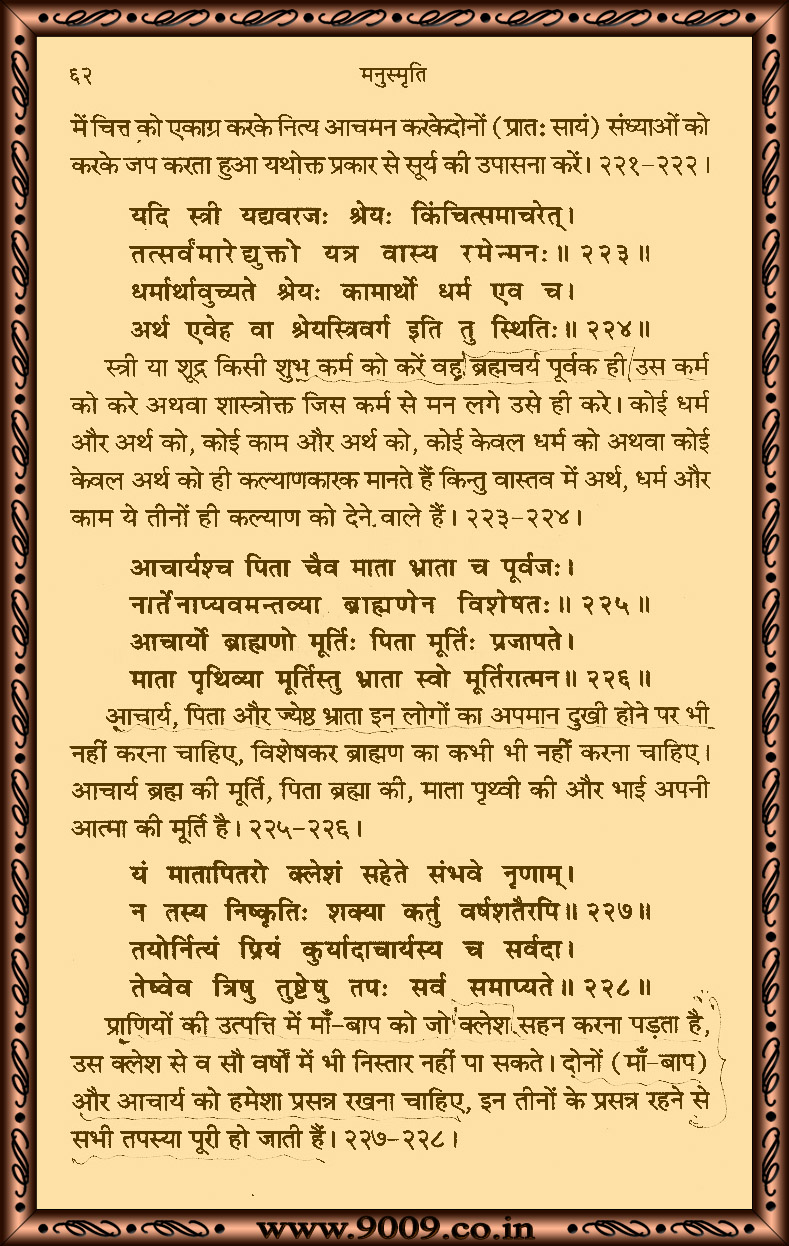 ६२ मनुस्मृति
में चित्त को एकाग्र करके नित्य आचमन करकेदोनों (प्रातः सायं) संध्याओं को
करके जप करता हुआ यथोक्त प्रकार से सूर्य की उपासना करें। २२१-२२२।
यदि स्त्री यद्यवरजः श्रेयः किंचित्समाचरेत्।
तत्सर्वमारेद्युक्तो यत्र वास्य रमेन्मनः॥ २२३॥
धर्मार्थावुच्यते श्रेयः कामार्थो धर्म एव च।
अर्थ एवेह वा श्रेयस्त्रिवर्ग इति तु स्थितिः॥ २२४॥
स्त्री या शूद्र किसी शुभ कर्म को करें वह ब्रह्मचर्य पूर्वक ही उस कर्म
को करे अथवा शास्त्रोक्त जिस कर्म से मन लगे उसे ही करे। कोई धर्म
और अर्थ को, कोई काम और अर्थ को, कोई केवल धर्म को अथवा कोई
केवल अर्थ को ही कल्याणकारक मानते हैं किन्तु वास्तव में अर्थ, धर्म और
काम ये तीनों ही कल्याण को देने वाले हैं। २२३-२२४।
आचार्यश्च पिता चैव माता भ्राता च पूर्वजः।
नार्तेनाप्यवमन्तव्या ब्राह्मणेन विशेषतः॥ २२५॥
आचार्यो ब्राह्मणो मूर्तिः पिता मूर्तिः प्रजापते।
माता पृथिव्या मूर्तिस्तु भ्राता स्वो मूर्तिरात्मन॥ २२६॥
आचार्य, पिता और ज्येष्ठ भ्राता इन लोगों का अपमान दुखी होने पर भी
नहीं करना चाहिए, विशेषकर ब्राह्मण का कभी भी नहीं करना चाहिए।
आचार्य ब्रह्म की मूर्ति, पिता ब्रह्मा की, माता पृथ्वी की और भाई अपनी
आत्मा की मूर्ति है। २२५-२२६।
यं मातापितरो क्लेशं सहेते संभवे नृणाम्।
न तस्य निष्कृतिः शक्या कर्तु वर्षशतैरपि॥ २२७॥
तयोर्नित्यं प्रियं कुर्यादाचार्यस्य च सर्वदा।
तेष्वेव त्रिषु तुष्टेषु तपः सर्व समाप्यते॥ २२८॥
प्राणियों की उत्पत्ति में माँ-बाप को जो क्लेश सहन करना पड़ता है,
उस क्लेश से व सौ वर्षों में भी निस्तार नहीं पा सकते। दोनों (माँ-बाप)
और आचार्य को हमेशा प्रसन्न रखना चाहिए, इन तीनों के प्रसन्न रहने से
सभी तपस्या पूरी हो जाती हैं। २२७-२२८।
www.9009.co.in